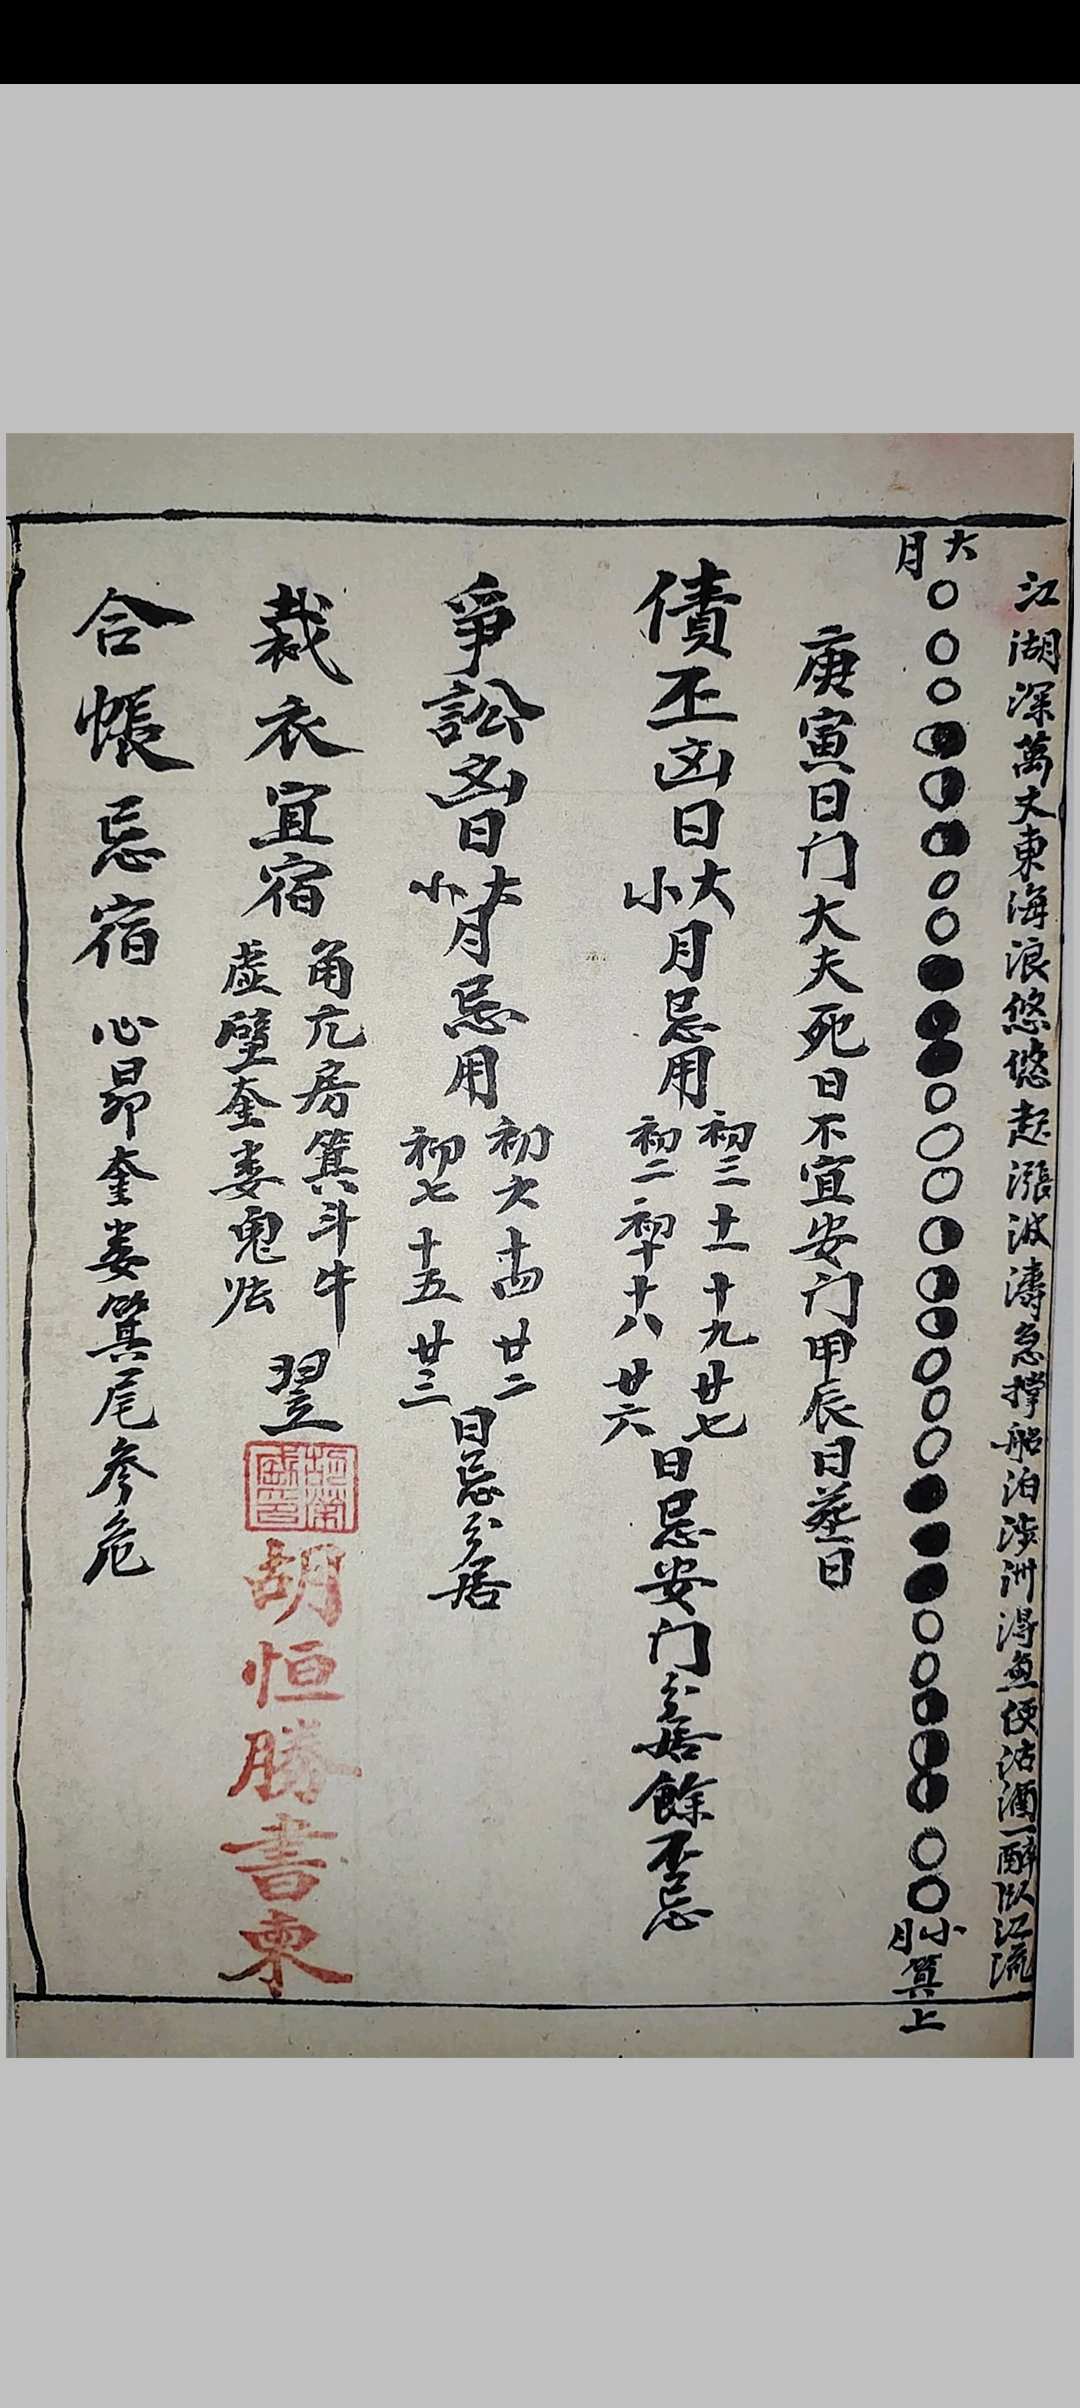 江湖深萬丈東海浪悠悠起漲波濤急撑船泊涉洲得魚便沽酒一醉臥江流
大月
小月算上
庚寅日门大夫死日不宜安门甲辰日葬日
債丕凶日大小月忌用初三十一十九廿七
初二初十十八廿六
日忌安门分居餘不忌
爭訟凶日大小月忌用初六十四廿二
初七十五廿三
日忌分居
裁衣宜宿角亢房箕斗牛
虛壁奎婁鬼
翌
胡恒勝書柬
合帳忌宿心昴奎婁箕尾參危